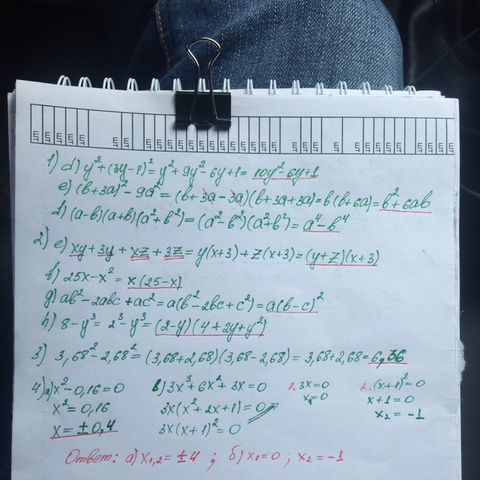 1) d) y²+(3y-1)²=y²+9y²-6y+1=10y²-6y+1
e) (b+3a)²-9a²=(b+3a-3a)(b+3a+3a)=b(b+6a)=b²+6ab
f) (a-b)(a+b)(a²+b²)=(a²-b²)(a²+b²)=a⁴-b⁴
2) e) xy+3y+xz+3z=y(x+3)+z(x+3)=(y+z)(x+3)
f) 25x-x²=x(25-x)
g) ab²-2abc+ac²=a(b²-2bc+c²)=a(b-c)²
h) 8-y³=2³-y³=(2-y)(4+2y+y²)
3) 3,68²-2,68²=(3,68+2,68)(3,68-2,68)=3,68+2,68=6,36
4) a) x²-0,16=0
x²=0,16
x=±0,4
b) 3x³+6x²+3x=0
3x(x²+2x+1)=0
3x(x+1)²=0
1. 3x=0
x₁=0
2. (x+1)²=0
x+1=0
x₂=-1
Ответ: а) x₁,₂=±4; б) x₁=0; x₂=-1